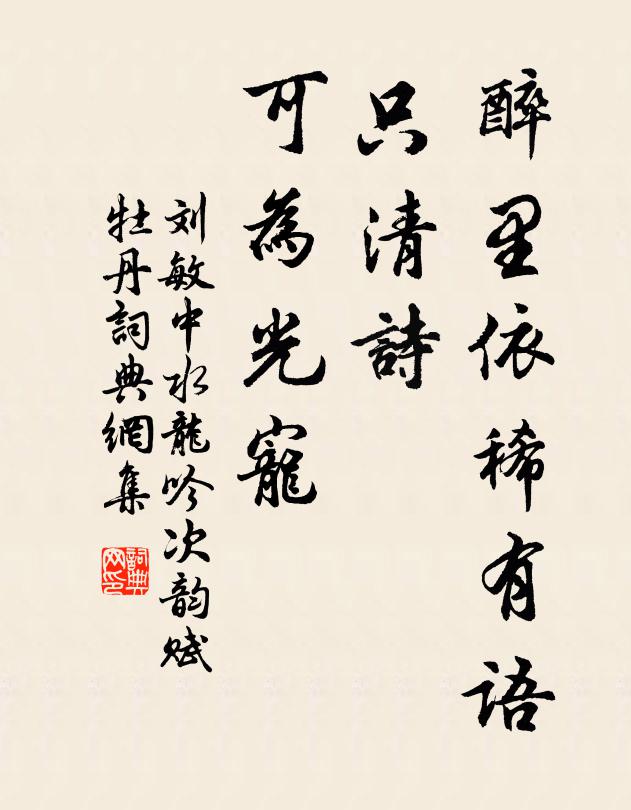 醉里依稀有语
只清詩
可為光寵
刘敏中水龍吟次韵赋
牡丹詞典網集
詞典网印